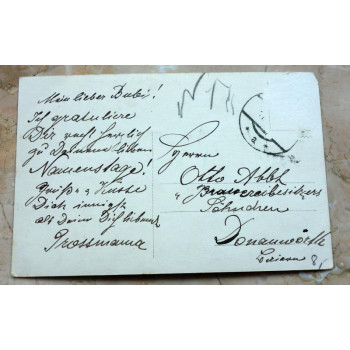 Mein lieber Bubi!
Ich gratuliere
Dir recht herzlich
zu Deinem lieben
Namenstage!
Grüße u. Küsse
Dich innigst
als Deine Dich liebende
Grossmama
Herrn
Otto Abbt
Brauereibesitzers
Söhnchen
Donauwörth
Baiern